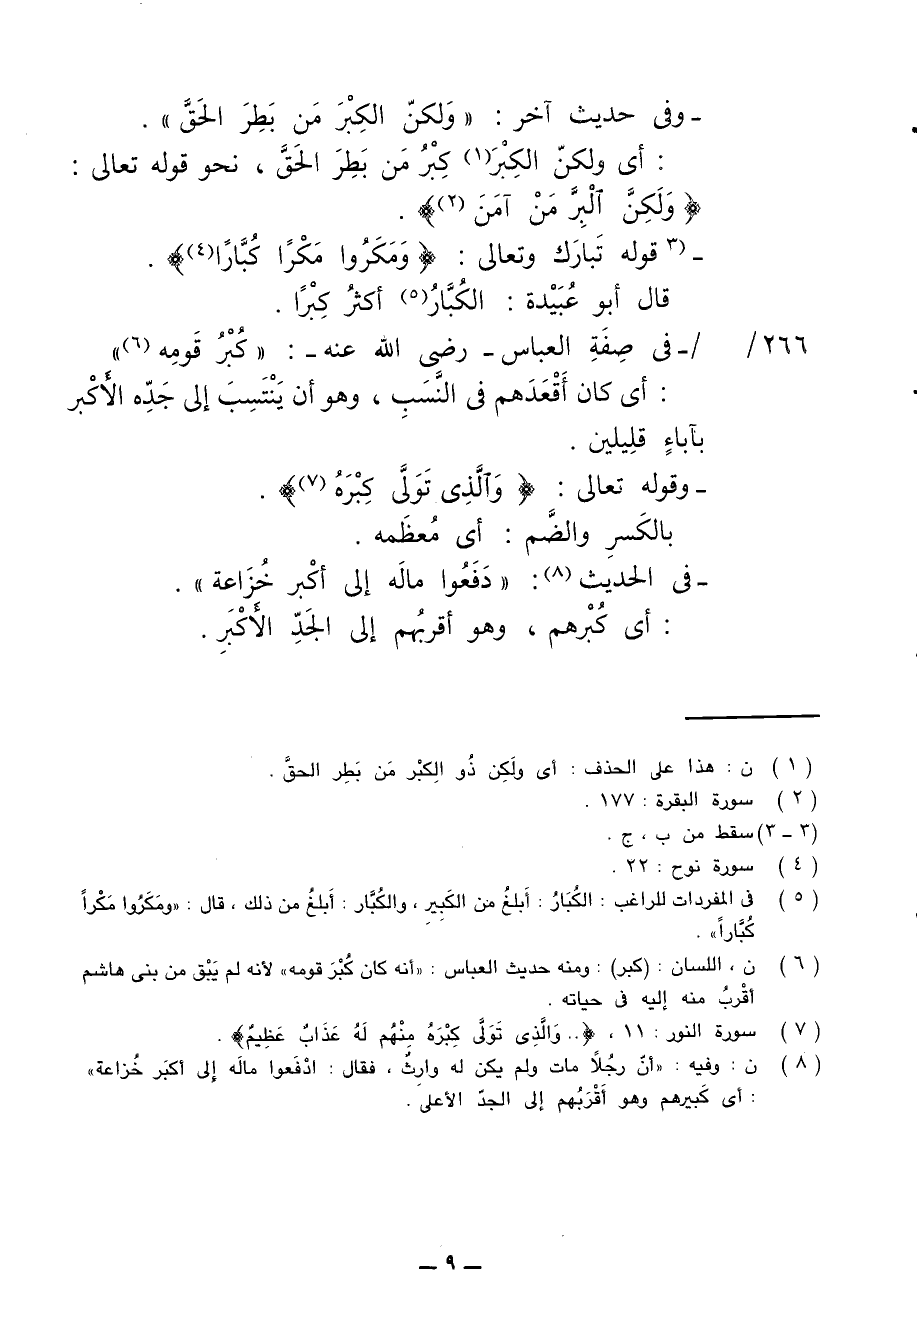 ـ وفى حديث آخر : « وَلَكنّ الكِبْرَ مَن بَطِرَ الحَقَّ » .
: أى ولكنّ الكِبْرَ(١) كِبْرُ مَن بَطِرَ الحَقَّ ، نحو قوله تعالى :
﴿ وَلَكِنَّ ٱلْبِرَّ مَنْ آمَنَ (٢)﴾ .
ـ (٣ قوله تَبارَك وتعالى : ﴿ وَمَكَرُوا مَكْرًا كُبَّارًا(٤)﴾ .
قال أبو عُبَيْدة : الكُبَّارُ(٥) أكثرُ كِبْرًا .
٢٦٦/ /ـ فى صِفَةِ العباس ـ رضى الله عنه ـ : « كُبْرُ قَومِه (٦)»
: أى كان أَقْعَدَهم فى النَّسَبِ ، وهو أن يَنْتَسِبَ إلى جَدِّه الأَكْبرِ
بآباءٍ قلِيلين .
ـ وقوله تعالى : ﴿ وَٱلَّذِى تَوَلَّى كِبْرَهُ (٧)﴾ .
بالكَسرِ والضَّم : أى مُعظَمه .
ـ فى الحديث (٨): « دَفَعُوا مالَه إلى أكْبرِ خُزَاعة » .
: أى كُبْرهم ، وهو أقربُهم إلى الجَدِّ الأَكْبَرِ .
( ١ ) ن : هذا على الحذف : أى ولَكِن ذُو الكِبْر مَن بَطِر الحقَّ .
( ٢ ) سورة البقرة : ١٧٧ .
(٣ ـ ٣) سقط من ب ، ج .
( ٤ ) سورة نوح : ٢٢ .
( ٥ ) فى المفردات للراغب : الكُبَارُ : أبلغُ من الكَبِيرِ ، والكُبَّار : أبلغُ من ذلك ، قال : «ومَكَرُوا مَكْراً
كُبَّاراً» .
( ٦ ) ن ، اللسان : (كبر) : ومنه حديث العباس : «أنه كان كُبْرَ قومه» لأنه لم يَبْق من بنى هاشم
أقْربُ منه إليه فى حياته .
( ٧ ) سورة النور : ١١ ، ﴿.. وَالَّذِى تَوَلَّى كِبْرَهُ مِنْهُم لَهُ عَذَابٌ عَظِيمٌ﴾ .
( ٨ ) ن : وفيه : «أنّ رجُلاً مات ولم يكن له وارِثٌ ، فقال : ادْفَعوا مالَه إلى أكبَر خُزاعة»
: أى كَبِيرهم وهو أَقْرَبُهم إلى الجدّ الأعلى .
ـ ٩ ـ